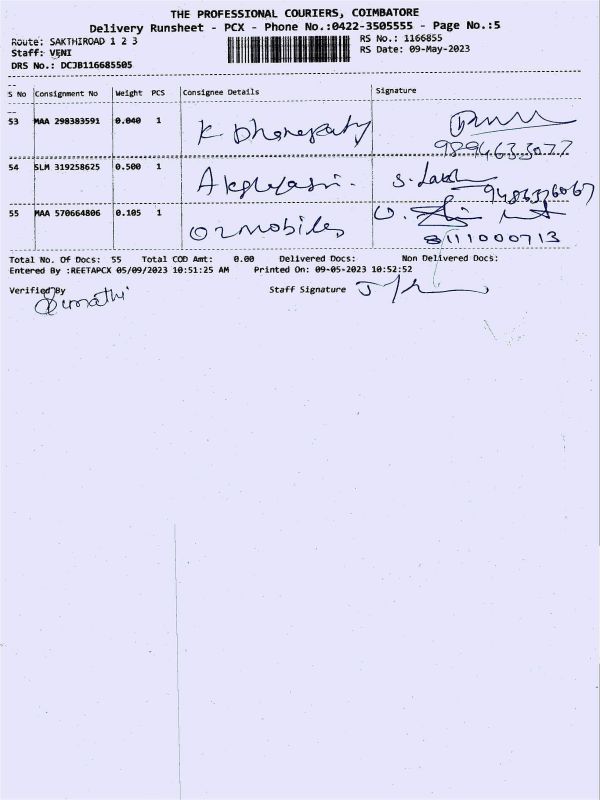 THE PROFESSIONAL COURIERS, COIMBATORE
Delivery Runsheet - PCX - Phone No.:0422-3505555 - Page No.:5
Route: SAKTHIROAD 1 2 3
RS No.: 1166855
Staff: VENI
RS Date: 09-May-2023
DRS No.: DCJB116685505
S No Consignment No Weight PCS Consignee Details Signature
53 MAA 298383591 0.040 1 K. Dhanapathy
9894633077
54 SLM 319258625 0.500 1 S. Laksh
9486376067
55 MAA 570664806 0.105 1 O2 mobiles
8111000713
Total No. Of Docs: 55 Total COD Amt: 0.00 Delivered Docs: Non Delivered Docs:
Entered By :REETAPCX 05/09/2023 10:51:25 AM Printed On: 09-05-2023 10:52:52
Verified By Staff Signature
Sumathi